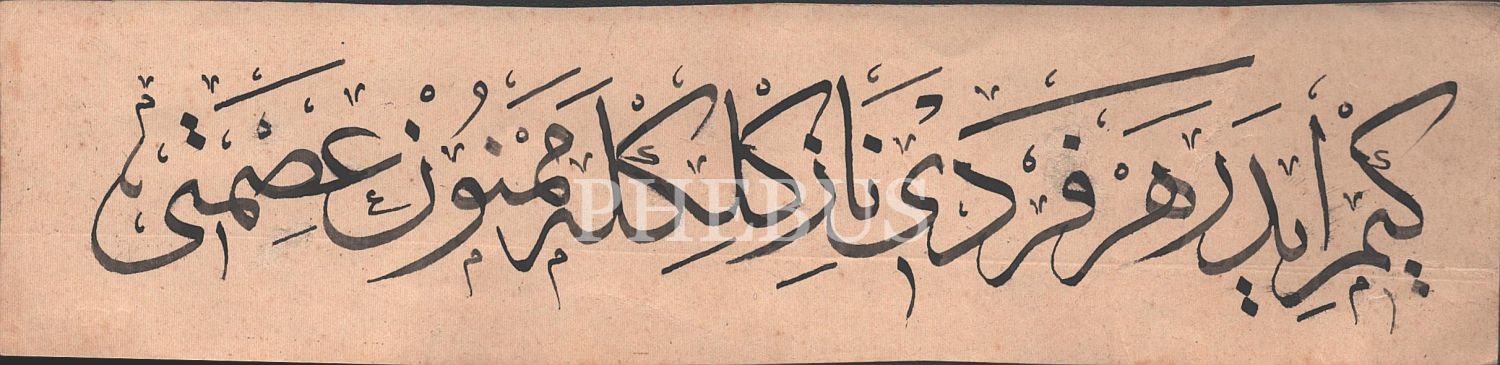 كيم ايدر هر فردى نازكلكله ممنون عصمتى
PHEBUS